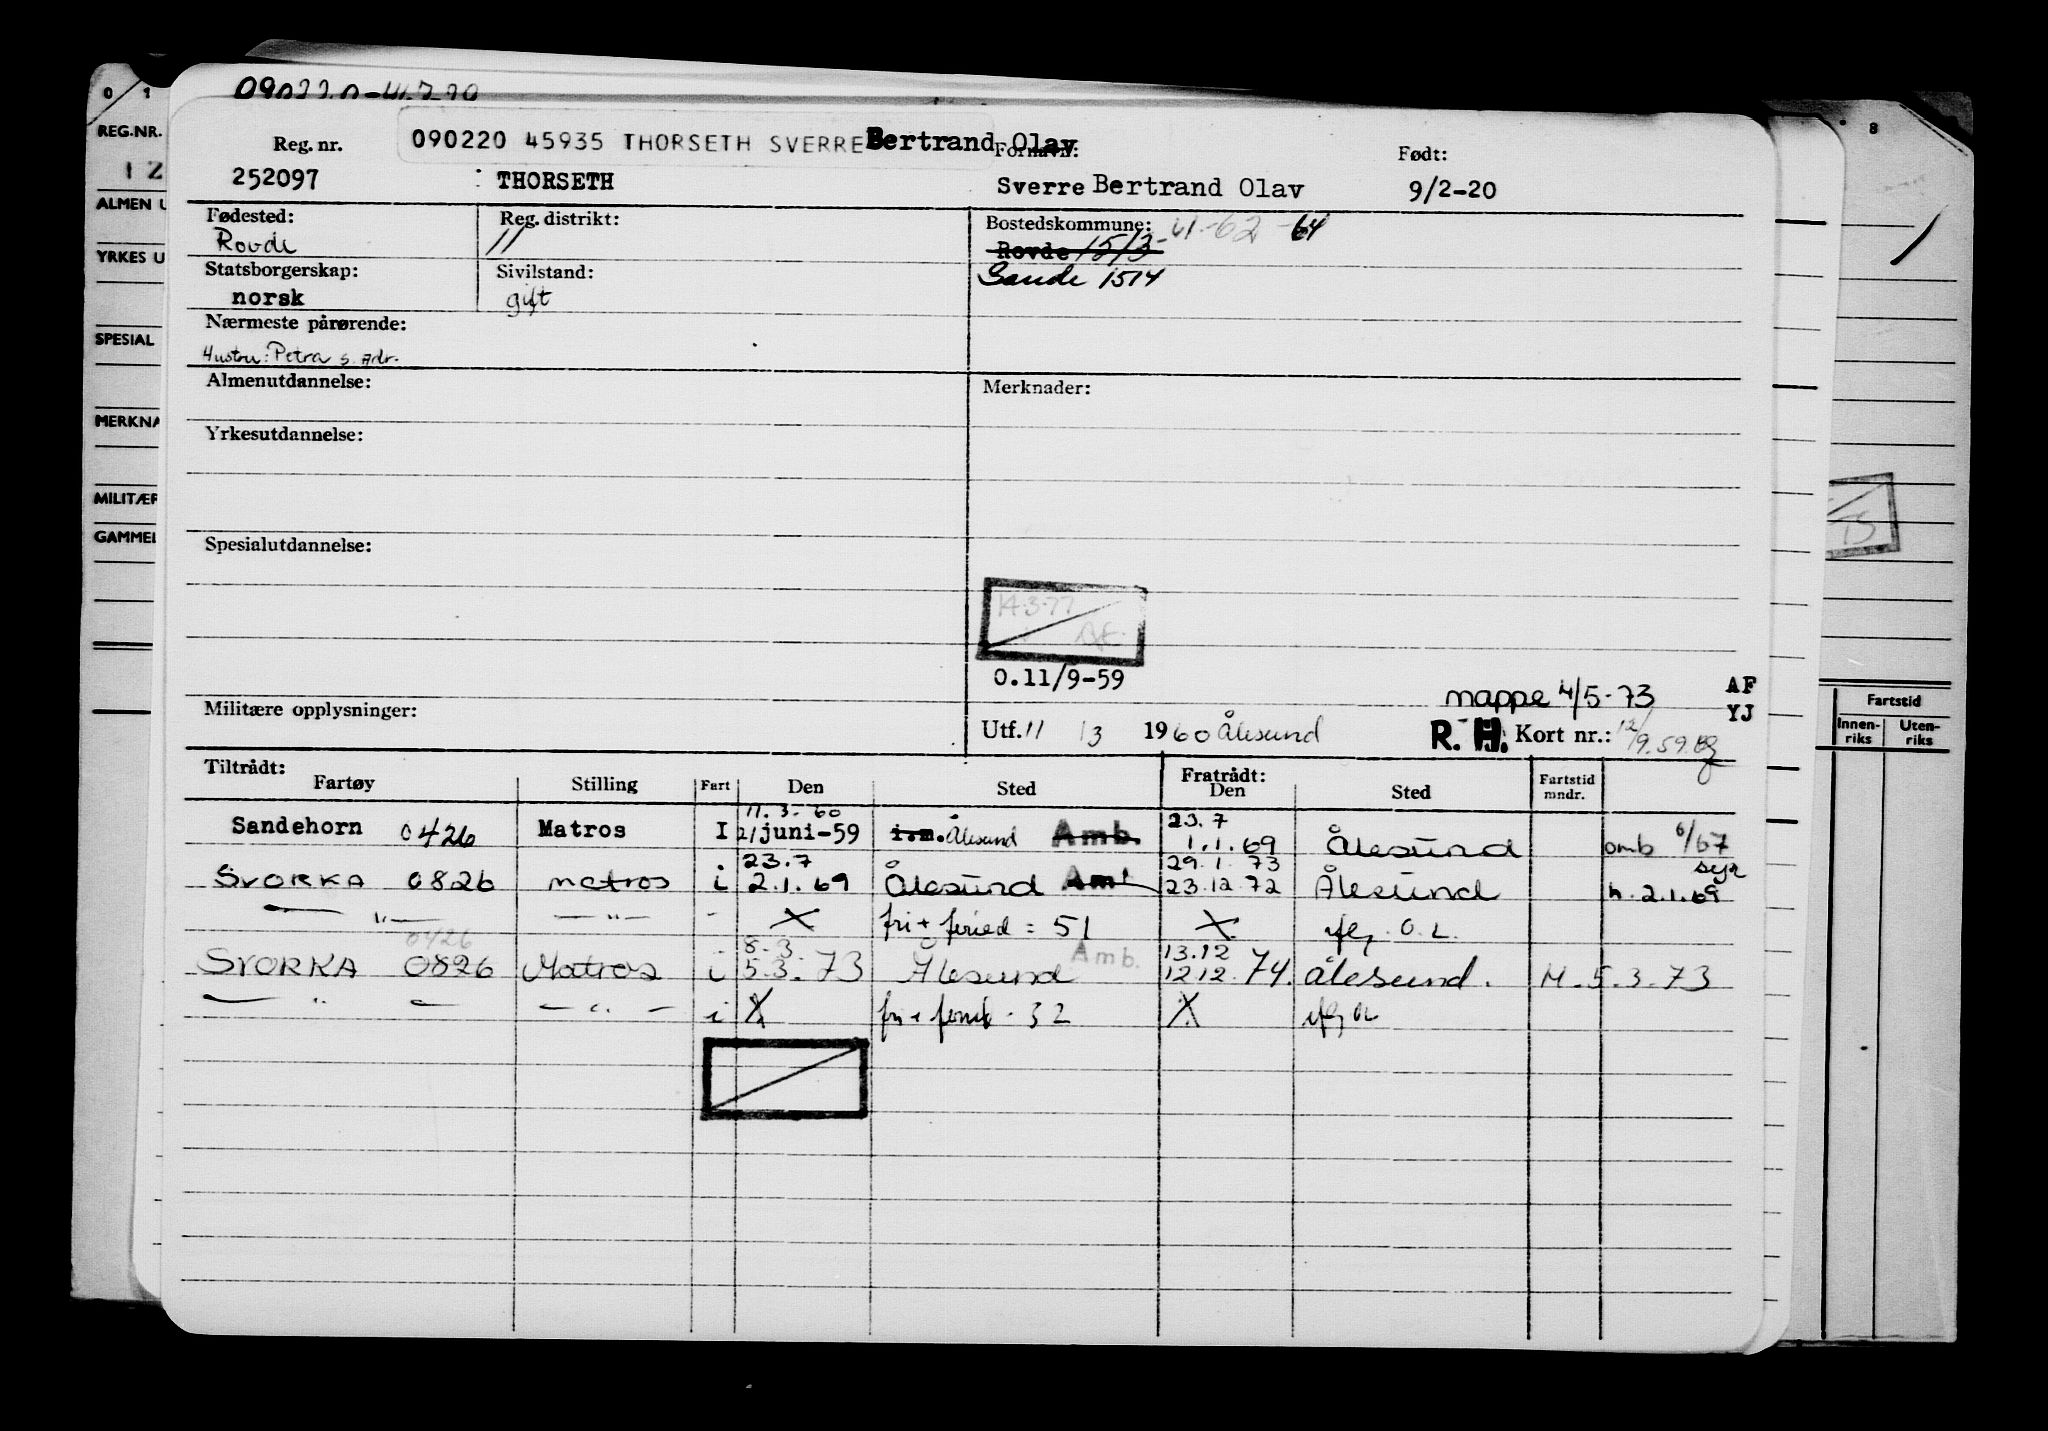 0 1
REG.NR.
1 2
ALMEN U
YRKES U
SPESIAL
MERKNA
MILITÆR
GAMMEL
8
Fartstid
Innen-riks Uten-riks
Reg. nr. 090220 45935 THORSETH SVERRE Bertrand Olav Fornavn: Født:
252097 THORSETH Sverre Bertrand Olav 9/2-20
Fødested: Reg. distrikt: Bostedskommune: 61-62-64
Rovde 11 Rovde 1513
Statsborgerskap: Sivilstand: Sande 1514
norsk gift
Nærmeste pårørende:
Hustru: Petra s. adr.
Almenutdannelse: Merknader:
Yrkesutdannelse:
Spesialutdannelse:
14.3.77
O.11/9-59
mappe 4/5-73 AF
YJ
Militære opplysninger: Utf. 11 13 1960 Ålesund R. H. Kort nr.: 12/9.59
Tiltrådt: Fratrådt:
Fartøy Stilling Fart Den Sted Den Sted Fartstid mndr.
11.3.60 23.7
Sandehorn 0426 Matros I 21/juni-59 i.m. Ålesund Amb. 1.1.69 Ålesund omb 6/67
23.7 29.1.73
SVORKA 0826 matros i 2.1.69 Ålesund Amb 23.12.72 Ålesund h. 2.1.69
— " — — " — - X fri + feried = 51 X
0426 8.3. Amb. 13.12
SVORKA 0826 Matros i 5.3.73 Ålesund 12.12.74. Ålesund. M. 5.3.73
— " — — " — i X fri + - 32 X